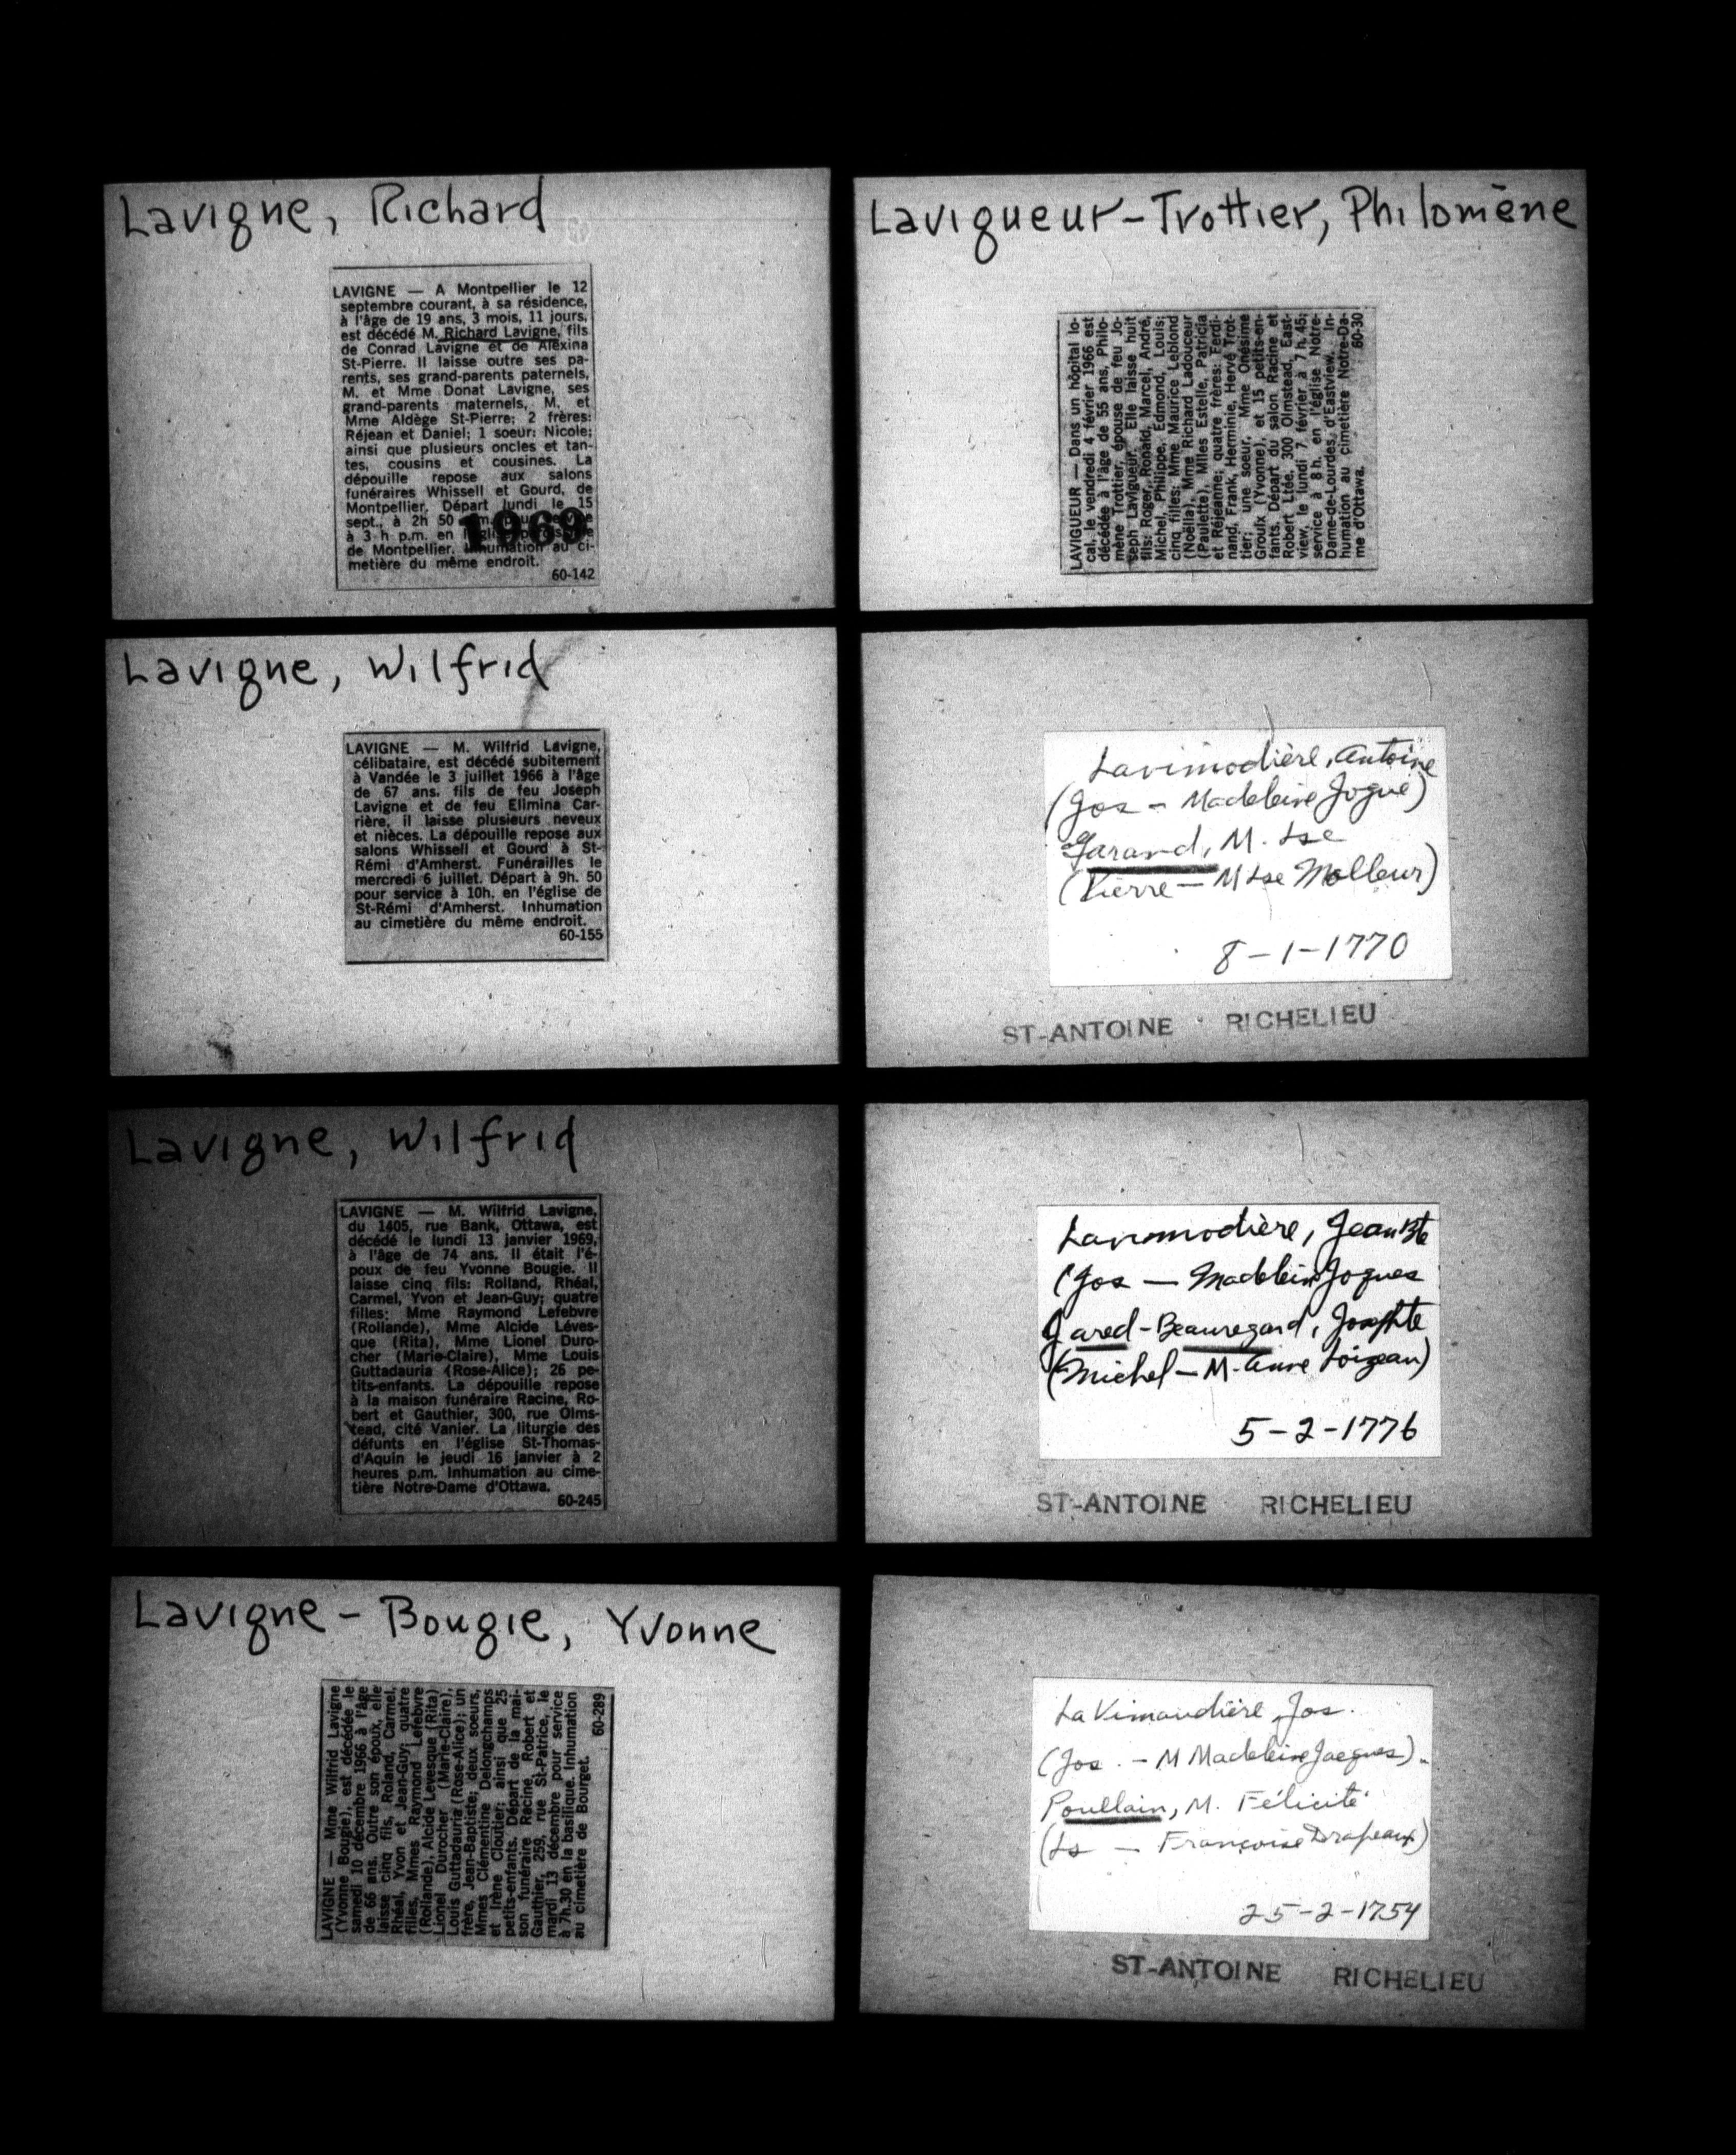 Lavigne, Richard
LAVIGNE — A Montpellier le 12
septembre courant, à sa résidence,
à l'âge de 19 ans, 3 mois, 11 jours,
est décédé M. Richard Lavigne, fils
de Conrad Lavigne et de Alexina
St-Pierre. Il laisse outre ses pa-
rents, ses grand-parents paternels,
M. et Mme Donat Lavigne, ses
grand-parents maternels, M. et
Mme Aldège St-Pierre; 2 frères:
Réjean et Daniel; 1 soeur: Nicole;
ainsi que plusieurs oncles et tan-
tes, cousins et cousines. La
dépouille repose aux salons
funéraires Whissell et Gourd, de
Montpellier. Départ lundi le 15
sept., à 2h 50
à 3 h p.m. en
de Montpellier. Inhumation au ci-
metière du même endroit.
60-142
1969
Lavigne, Wilfrid
LAVIGNE — M. Wilfrid Lavigne,
célibataire, est décédé subitement
à Vandée le 3 juillet 1966 à l'âge
de 67 ans. fils de feu Joseph
Lavigne et de feu Elimina Car-
rière, il laisse plusieurs neveux
et nièces. La dépouille repose aux
salons Whissell et Gourd à St-
Rémi d'Amherst. Funérailles le
mercredi 6 juillet. Départ à 9h. 50
pour service à 10h. en l'église de
St-Rémi d'Amherst. Inhumation
au cimetière du même endroit.
60-155
Lavigne, Wilfrid
LAVIGNE — M. Wilfrid Lavigne,
du 1405, rue Bank, Ottawa, est
décédé le lundi 13 janvier 1969,
à l'âge de 74 ans. Il était l'é-
poux de feu Yvonne Bougie. Il
laisse cinq fils: Rolland, Rhéal,
Carmel, Yvon et Jean-Guy; quatre
filles: Mme Raymond Lefebvre
(Rollande), Mme Alcide Léves-
que (Rita), Mme Lionel Duro-
cher (Marie-Claire), Mme Louis
Guttadauria (Rose-Alice); 26 pe-
tits-enfants. La dépouille repose
à la maison funéraire Racine, Ro-
bert et Gauthier, 300, rue Olms-
tead, cité Vanier. La liturgie des
défunts en l'église St-Thomas-
d'Aquin le jeudi 16 janvier à 2
heures p.m. Inhumation au cime-
tière Notre-Dame d'Ottawa.
60-245
Lavigne-Bougie, Yvonne
LAVIGNE — Mme Wilfrid Lavigne
(Yvonne Bougie), est décédée le
samedi 10 décembre 1966 à l'âge
de 66 ans. Outre son époux, elle
laisse cinq fils, Roland, Carmel,
Rhéal, Yvon et Jean-Guy; quatre
filles, Mmes Raymond Lefebvre
(Rollande), Alcide Levesque (Rita)
Lionel Durocher (Marie-Claire),
Louis Guttadauria (Rose-Alice); un
frère, Jean-Baptiste; deux soeurs,
Mmes Clémentine Delongchamps
et Irène Cloutier; ainsi que 25
petits-enfants. Départ de la mai-
son funéraire Racine, Robert et
Gauthier, 259, rue St-Patrice, le
mardi 13 décembre pour service
à 7h.30 en la basilique. Inhumation
au cimetière de Bourget.
60-289
Lavigueur-Trottier, Philomène
LAVIGUEUR — Dans un hôpital lo-
cal, le vendredi 4 février 1966 est
décédée à l'âge de 55 ans, Philo-
mène Trottier, épouse de feu Jo-
seph Lavigueur. Elle laisse huit
fils: Roger, Ronald, Marcel, André,
Michel, Philippe, Edmond, Louis;
cinq filles: Mme Maurice Leblond
(Noëlla), Mme Richard Ladouceur
(Paulette), Mlles Estelle, Patricia
et Réjeanne; quatre frères: Ferdi-
nand, Frank, Herminie, Hervé Trot-
tier; une soeur, Mme Onésime
Groulx (Yvonne), et 15 petits-en-
fants. Départ du salon Racine et
Robert Ltée, 300 Olmstead, East-
view, le lundi 7 février à 7 h. 45;
service à 8h. en l'église Notre-
Dame-de-Lourdes d'Eastview. In-
humation au cimetière Notre-Da-
me d'Ottawa.
60-30
Lavimodière, Antoine
(Jos - Madeleine Jogue)
Garand, M. Lse
(Pierre - M Lse Molleur)
8-1-1770
ST-ANTOINE RICHELIEU
Lavimodière, Jean Bte
(Jos - Madelein Jogues
Jared-Beauregard, Josephte
(Michel - M. Anne Loizeau)
5-2-1776
ST-ANTOINE RICHELIEU
LaVimaudière, Jos.
(Jos. - M Madeleine Jacques).
Poullain, M. Félicité
(Ls - Françoise Drapeau)
25-2-1754
ST-ANTOINE RICHELIEU